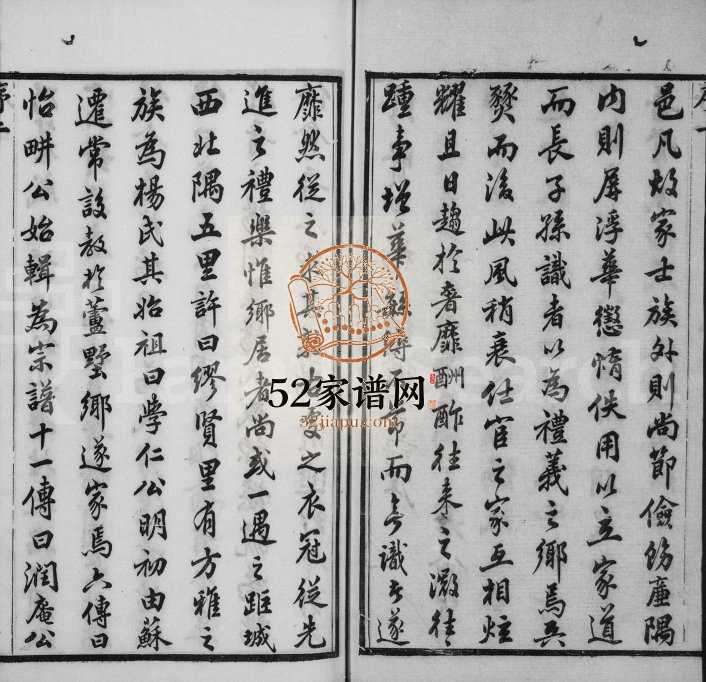 邑凡故家士族外則尚節儉飭廉隅
內則屏浮華懲惰佚用以立家道
而長子孫識者以為禮義之鄉焉兵
燹而後此風稍衰仕宦之家互相炫
耀且日趨於奢靡酬酢往來之激往
踵事增華而無識者遂
靡然從之之衣冠從先
進之禮樂惟鄉居者尚或一遇之距城
西北隅五里許曰繆賢里有方雅之
族為楊氏其始祖曰學仁公明初由蘇
遷常設教於蘆墅鄉遂家焉六傳曰
怡畊公始輯為宗譜十一傳曰潤庵公
52家谱网
52jiapu.com